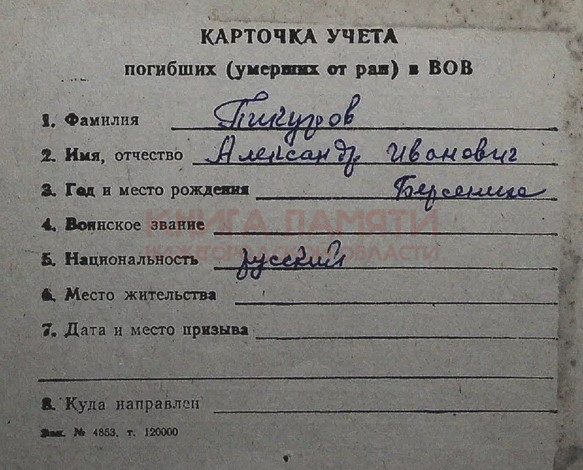 КАРТОЧКА УЧЕТА
погибших (умерших от ран) в ВОВ
1. Фамилия Пикуров
2. Имя, отчество Александр Иванович
3. Год и место рождения Берсениха
4. Воинское звание
КНИГА ПАМЯТИ
НИЖЕГОРОДСКОЙ ОБЛАСТИ
5. Национальность русский
6. Место жительства
7. Дата и место призыва
8. Куда направлен
Зак. № 4853, т. 120000